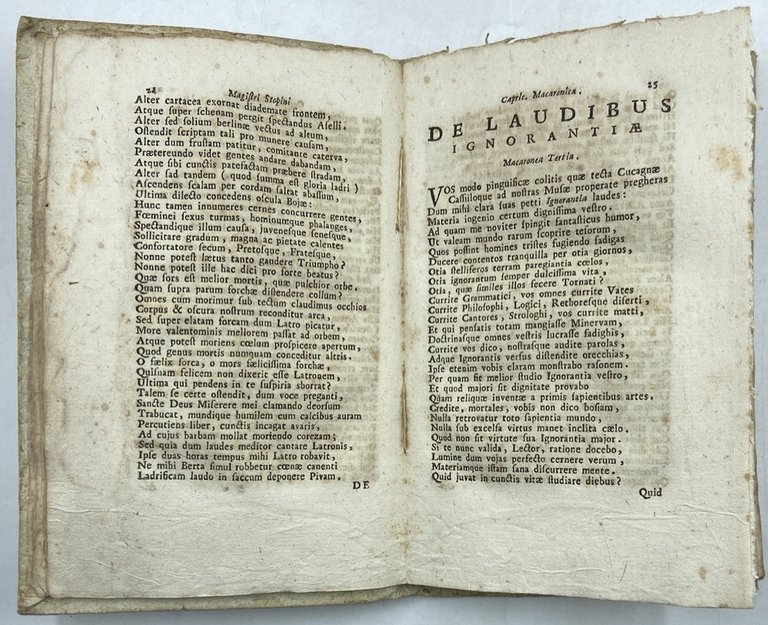 24
Magistri Stopini
Alter cartacea exornat diademate frontem,
Atque super schenam pergit spectandus Aselli.
Alter sed solium berlinæ vectus ad altum,
Ostendit scriptam tali pro munere causam,
Alter dum frustam patitur, comitante caterva,
Prætereundo videt gentes andare dabandam,
Atque sibi cunctis patefactam præbere stradam,
Alter sad tandem ( quod summa est gloria ladri )
Ascendens scalam per cordam saltat abassum,
Ultima dilecto concedens oscula Bojæ:
Hunc tamen innumeres cernes concurrere gentes,
Fœminei sexus turmas, hominumque phalanges,
Spectandique illum causa, juvenesque senesque,
Sollicitare gradum, magna ac pietate calentes
Confortatore secum, Pretosque, Fratesque,
Nonne potest lætus tanto gaudere Triumpho?
Nonne potest ille hac dici pro sorte beatus?
Quæ fors est melior mortis, quæ pulchior orbe.
Quam supra parum forchæ distendere collum?
Omnes cum morimur sub tectum claudimus occhios
Corpus & oscura nostrum reconditur arca,
Sed super elatam forcam dum Latro picatur,
More valentominis meliorem passat ad orbem,
Atque potest moriens cœlum prospicere apertum,
Quod genus mortis numquam conceditur altris.
O fælix forca, o mors fælicissima forchæ,
Quisnam felicem non dixerit esse Latronem,
Ultima qui pendens in te suspiria sborrat?
Talem se certe ostendit, dum voce preganti,
Sancte Deus Miserere mei clamando deorsum
Trabucat, mundique humilem cum calcibus auram
Percutiens liber, cunctis incagat avaris,
Ad cujus barbam mollat moriendo corezam;
Sed quia dum laudes meditor cantare Latronis,
Ipse duas horas tempus mihi Latro robavit,
Ne mihi Berta simul robbetur cœnæ canenti
Ladrificam laudo in saccum deponere Pivam.
DE
Capric. Macaronica.
25
DE LAUDIBUS
IGNORANTIÆ
Macaronea Tertia.
VOS modo pinguificæ colitis quæ tecta Cucagnæ
Cassiiloque ad nostras Musæ properate pregheras
Dum mihi clara suas petti Ignorantia laudes:
Materia ingenio certum dignissima vestro.
Ad quam me noviter spingit fantasticus humor,
Ut valeam mundo rarum scoprire tesorum,
Quos possint homines tristes fugiendo fadigas
Ducere contentos tranquilla per otia giornos,
Otia stelliferos terram paregiantia cœlos,
Otia ignorantum semper dulcissima vita,
Otia, quæ similes illos fecere Tornati?
Currite Grammatici, vos omnes currite Vates
Currite Philosophi, Logici, Rethoresque diserti,
Currite Cantores, Strologhi, vos currite matti,
Et qui pensatis totam mangiasse Minervam,
Doctrinasque omnes vestris lucrasse fadighis,
Currite vos dico, nostrasque audite parolas,
Adque Ignorantis versus distendite orecchias,
Ipse etenim vobis claram monstrabo rasonem.
Per quam sit melior studio Ignorantia vestro,
Et quod majori sit dignitate provabo
Quam reliquiæ inventæ a primis sapientibus artes.
Credite, mortales, vobis non dico bosiam,
Nulla retrovatur toto sapientia mundo,
Nulla sub excelsa virtus manet inclita cælo.
Quod non sit virtute sua Ignorantia major.
Si te nunc valida, Lector, ratione docebo,
Lumine dum vojas perfecto cernere verum,
Materiamque istam sana discurrere mente.
Quid juvat in cunctis vitæ studiare diebus?
Quid